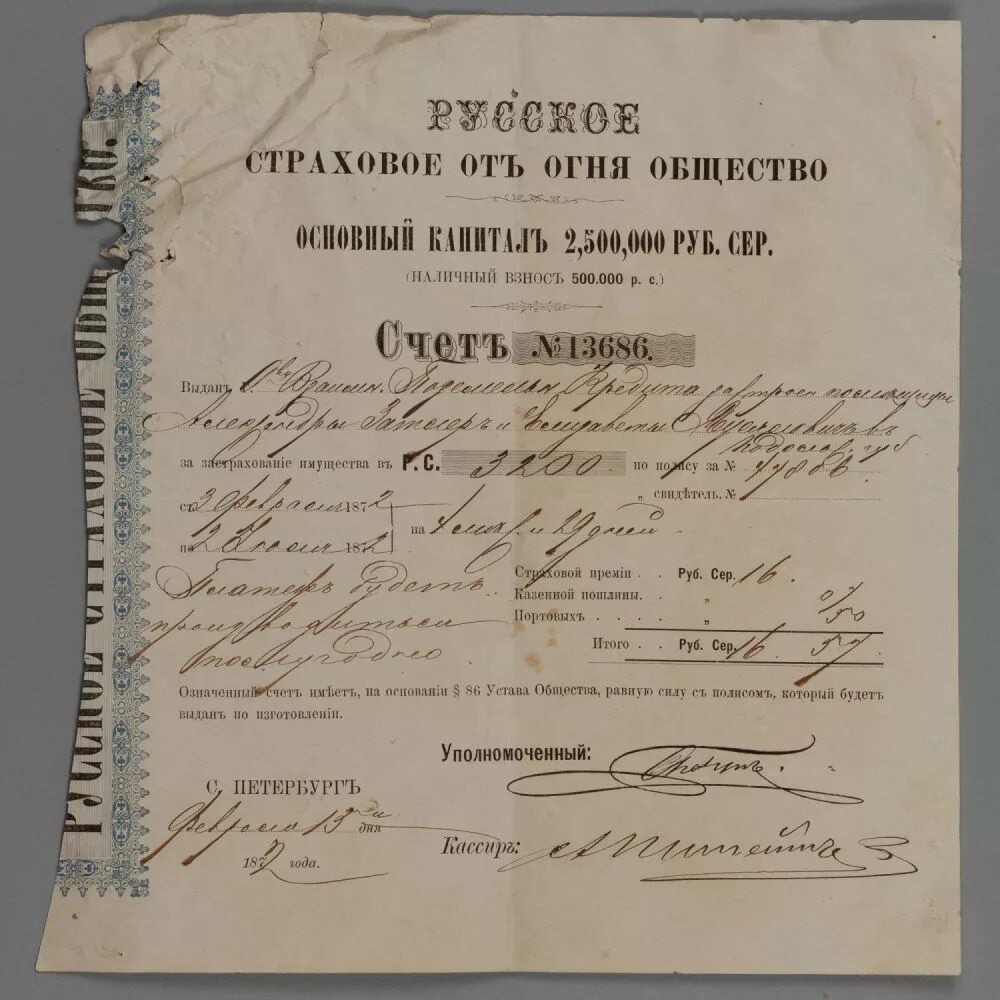 РУССКОЕ
СТРАХОВОЕ ОТЪ ОГНЯ ОБЩЕСТВО
ОСНОВНЫЙ КАПИТАЛЪ 2,500,000 РУБ. СЕР.
(НАЛИЧНЫЙ ВЗНОСЪ 500.000 р. с.)
Счетъ № 13686.
Выданъ Взаимн. Поземельн. Кредита
Александры и Елизаветы
за застрахованіе имущества въ Р. С. 3200 по полису за №
„ свидѣтель. №
съ 3 Февраля 1872
по 2 1872 на 4 мѣс. и 29 дней
Платежъ будетъ
производиться
Страховой преміи . . Руб. Сер. 16.
Казенной пошлины. . „
Портовыхъ . . . „ 50
Итого . . Руб. Сер. 16. 57.
Означенный счетъ имѣетъ, на основаніи § 86 Устава Общества, равную силу съ полисомъ, который будетъ
выданъ по изготовленіи.
Уполномоченный:
С. ПЕТЕРБУРГЪ
Февраля 13 дня
1872 года.
Кассиръ:
РУССКОЕ СТРАХОВОЕ